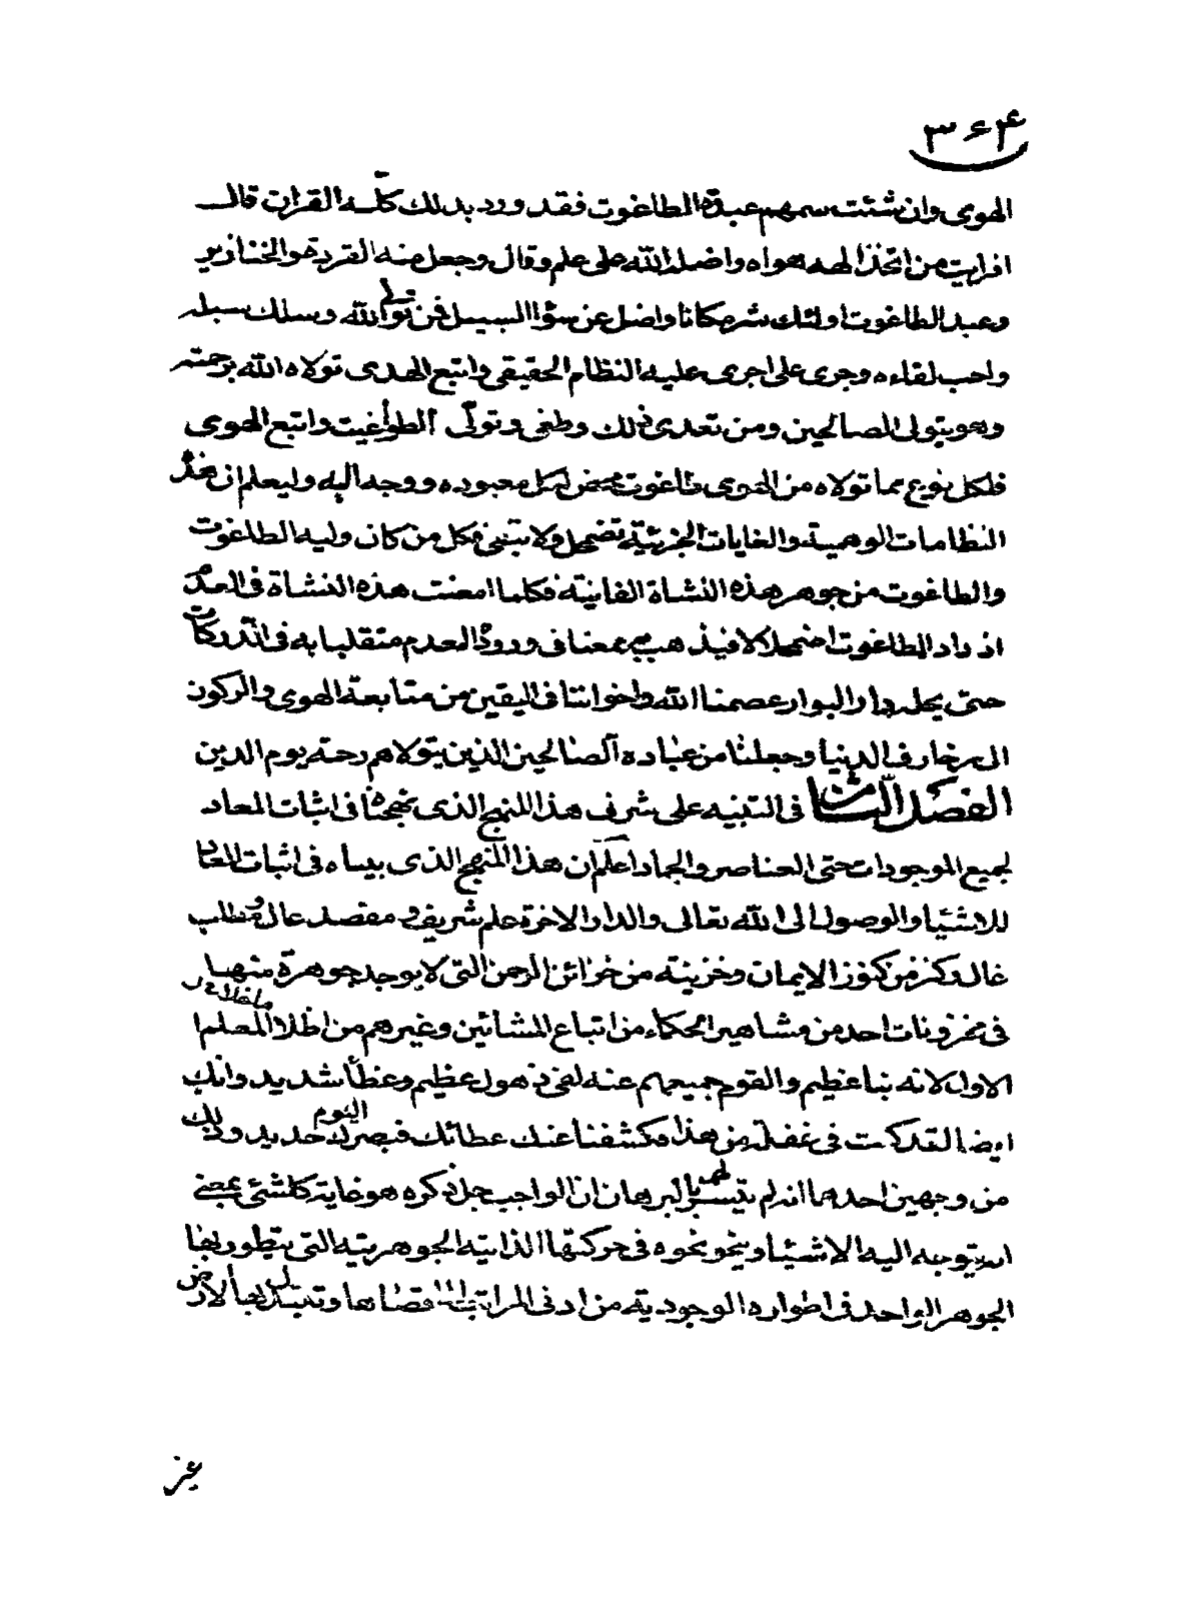 ٣٦٤
الهوى وان شئت سمهم عبدة الطاغوت فقد ورد بذلك كلّه القران قال
افرايت من اتخذ الهه هواه واضله الله على علم وقال وجعل منه القردة والخنازير
وعبد الطاغوت اولئك شر مكانا واضل عن سواء السبيل فمن تولى الله وسلك سبله
واحب لقاءه وجرى على اجرى عليه النظام الحقيقى واتبع الهدى تولاه الله برحمته
وهو يتولى الصالحين ومن تعدى ذلك وطغى وتولّى الطواغيت واتبع الهوى
فلكل نوع مما تولاه من الهوى طاغوت مخصص لكل معبوده ووجه اليه وليعلم ان هذه
النظامات الوهمية والغايات الجزئية تضمحل ولا تبقى فكل من كان وليه الطاغوت
والطاغوت من جوهر هذه النشاة الفانية فكلما امعنت هذه النشاة فى العدم
ازداد الطاغوت اضمحلالا فيذهب ممعنا فى ورود العدم متقلبا به فى الدركات
حتى يحله دار البوار عصمنا الله واخواننا فى اليقين من متابعة الهوى والركون
الى زخارف الدنيا وجعلنا من عباده الصالحين الذين يتولاهم رحمته يوم الدين
الفصل الثامن فى التنبيه على شرف هذا المنهج الذى نهجنا فى اثبات المعاد
لجميع الموجودات حتى العناصر والجماد اعلم ان هذا المنهج الذى بيناه فى اثبات المعاد
للاشياء والوصول الى الله تعالى والدار الاخرة علم شريف و مقصد عال ومطلب
غال وكنز من كنوز الايمان وخزينة من خزائن الرحمن التى لا يوجد جوهرة منها
فى مخزونات احد من مشاهير الحكماء من اتباع المشائين وغيرهم ما خلا المعلم
الاول لانه نبا عظيم والقوم جميعهم عنه لفى ذهول عظيم وغطاء شديد وانك
ايضا لقد كنت فى غفلة من هذا فكشفنا عنك غطائك فبصرك اليوم حديد وذلك
من وجهين احدهما انه لم يتيسر لهم البرهان ان الواجب جل ذكره هو غاية كل شئ بمعنى
انه يتوجه اليه الاشياء وينحو نحوه فى حركتها الذاتية الجوهرية التى يتطور بها
الجوهر الواحد فى اطواره الوجودية من ادنى المراتب الى اقصاها وتتبدل بها الارض
غير